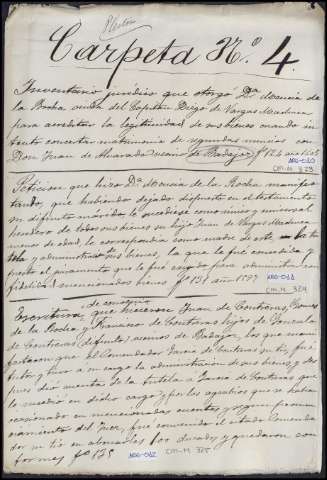 Carpeta N.º 4.
Inventario jurídico que otorgó Dª Mencía de
la Rocha viuda del Capitán Diego de Vargas Machuca
para acreditar la legitimidad de sus bienes cuando in-
tentó concertar matrimonio de segundas nuncias con
Don Juan de Alvarado vecino de Badajoz fº 126
ARO-040
CM-M 323
Petición que hizo Dª Mencía de la Rocha manifes-
tando, que habiendo dejado dispuesto en el testamento
su difunto marido, le sucediese como único y universal
heredero de todos sus bienes su hijo Juan de Vargas Machuca
menor de edad, le correspondía como madre de este, la tu-
tela y administración de sus bienes, la que le fué concedida y
prestó el juramento que le fué exigido para administrar con
fidelidad mencionados bienes fº 131
CM-M. 324
Escritura de concierto que hicieron Juan de Contreras, Gomez
de la Rocha y Francisco de Contreras hijos de Gonzalo
de Contreras difunto, vecinos de Badajoz, los que mani-
festaron que el Comendador Garcia de Contreras su tio, fué
tutor y tuvo a su cargo la administración de sus bienes, y des-
pues dió cuenta de la tutela a Garcia de Contreras que
le sucedió en dicho cargo y por los agravios que se habían
ocasionado en mencionadas cuentas y según pronun-
ciamiento del Juez, fué convenido el citado Comenda-
dor su tio en abonarles 100 ducados, y quedaron con-
formes fº 135
ARO-042
CM-M 325